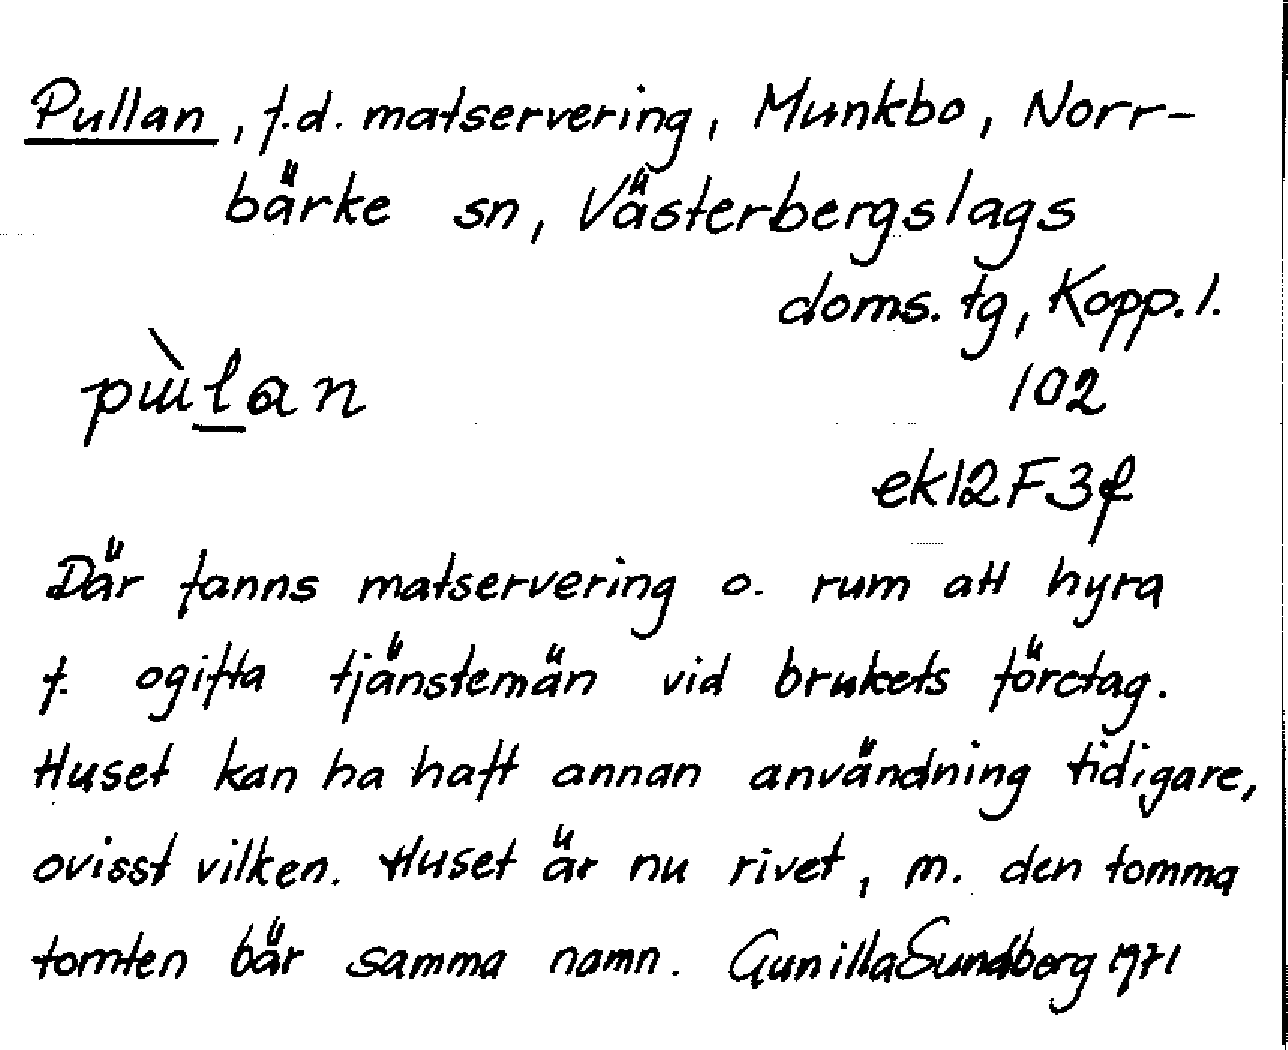 Pullan, f.d. matservering, Munkbo, Norr-
bärke sn, Västerbergslags
doms. tg, Kopp. l.
pɯ̀lan
102
ek12F3f
Där fanns matservering o. rum att hyra
f. ogifta tjänstemän vid brukets företag.
Huset kan ha haft annan användning tidigare,
ovisst vilken. Huset är nu rivet, m. den tomma
tomten bär samma namn. Gunilla Sundberg 1971